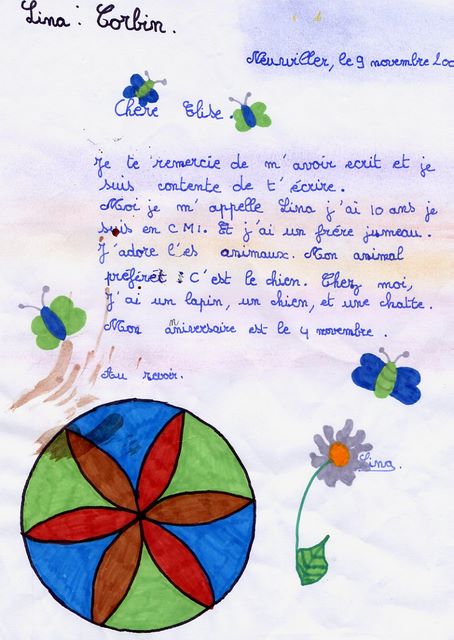 Lina : Corbin.
Neuviller, le 9 novembre 200
Chère Elise.
Je te remercie de m'avoir ecrit et je
suis contente de t'écrire.
Moi je m'appelle Lina j'ai 10 ans je
suis en CM1. Et j'ai un frére jumeau.
J'adore l'es animaux. Mon animal
préféret : C'est le chien. Chez moi,
J'ai un lapin, un chien, et une chatte.
Mon anniversaire est le 4 novembre.
Au revoir.
Lina.